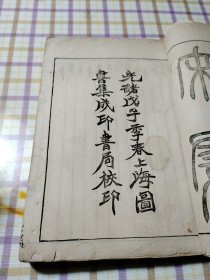 光緒戊子季春上海圖
書集成印書局校印